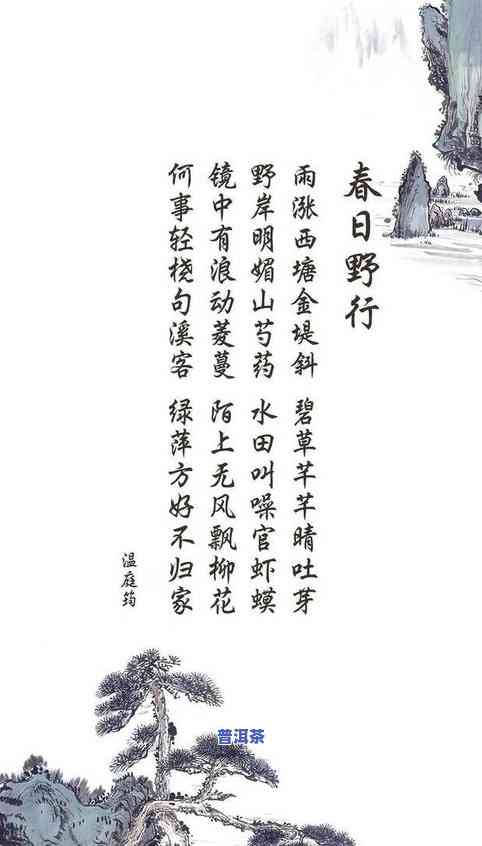 春日野行
雨涨西塘金堤斜
碧草芊芊晴吐芽
野岸明媚山芍药
水田叫噪官虾蟆
镜中有浪动菱蔓
陌上无风飘柳花
何事轻桡句溪客
绿萍方好不归家
温庭筠
普洱茶